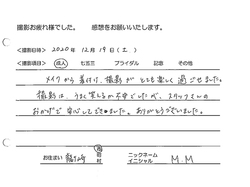 撮影お疲れ様でした。 感想をお願いいたします。
撮影日時 > 2020年 12月 19日(土)
撮影項目 > 成人 七五三 ブライダル 記念 その他
メイクから着付け、撮影がとても楽しく過ごせました。
撮影は、うまく笑えるか不安でしたが、スタッフさんの
おかげで安心してできました。ありがとうございました。
お住まい 龍ヶ崎 市 町 村 ニックネーム イニシャル M.M